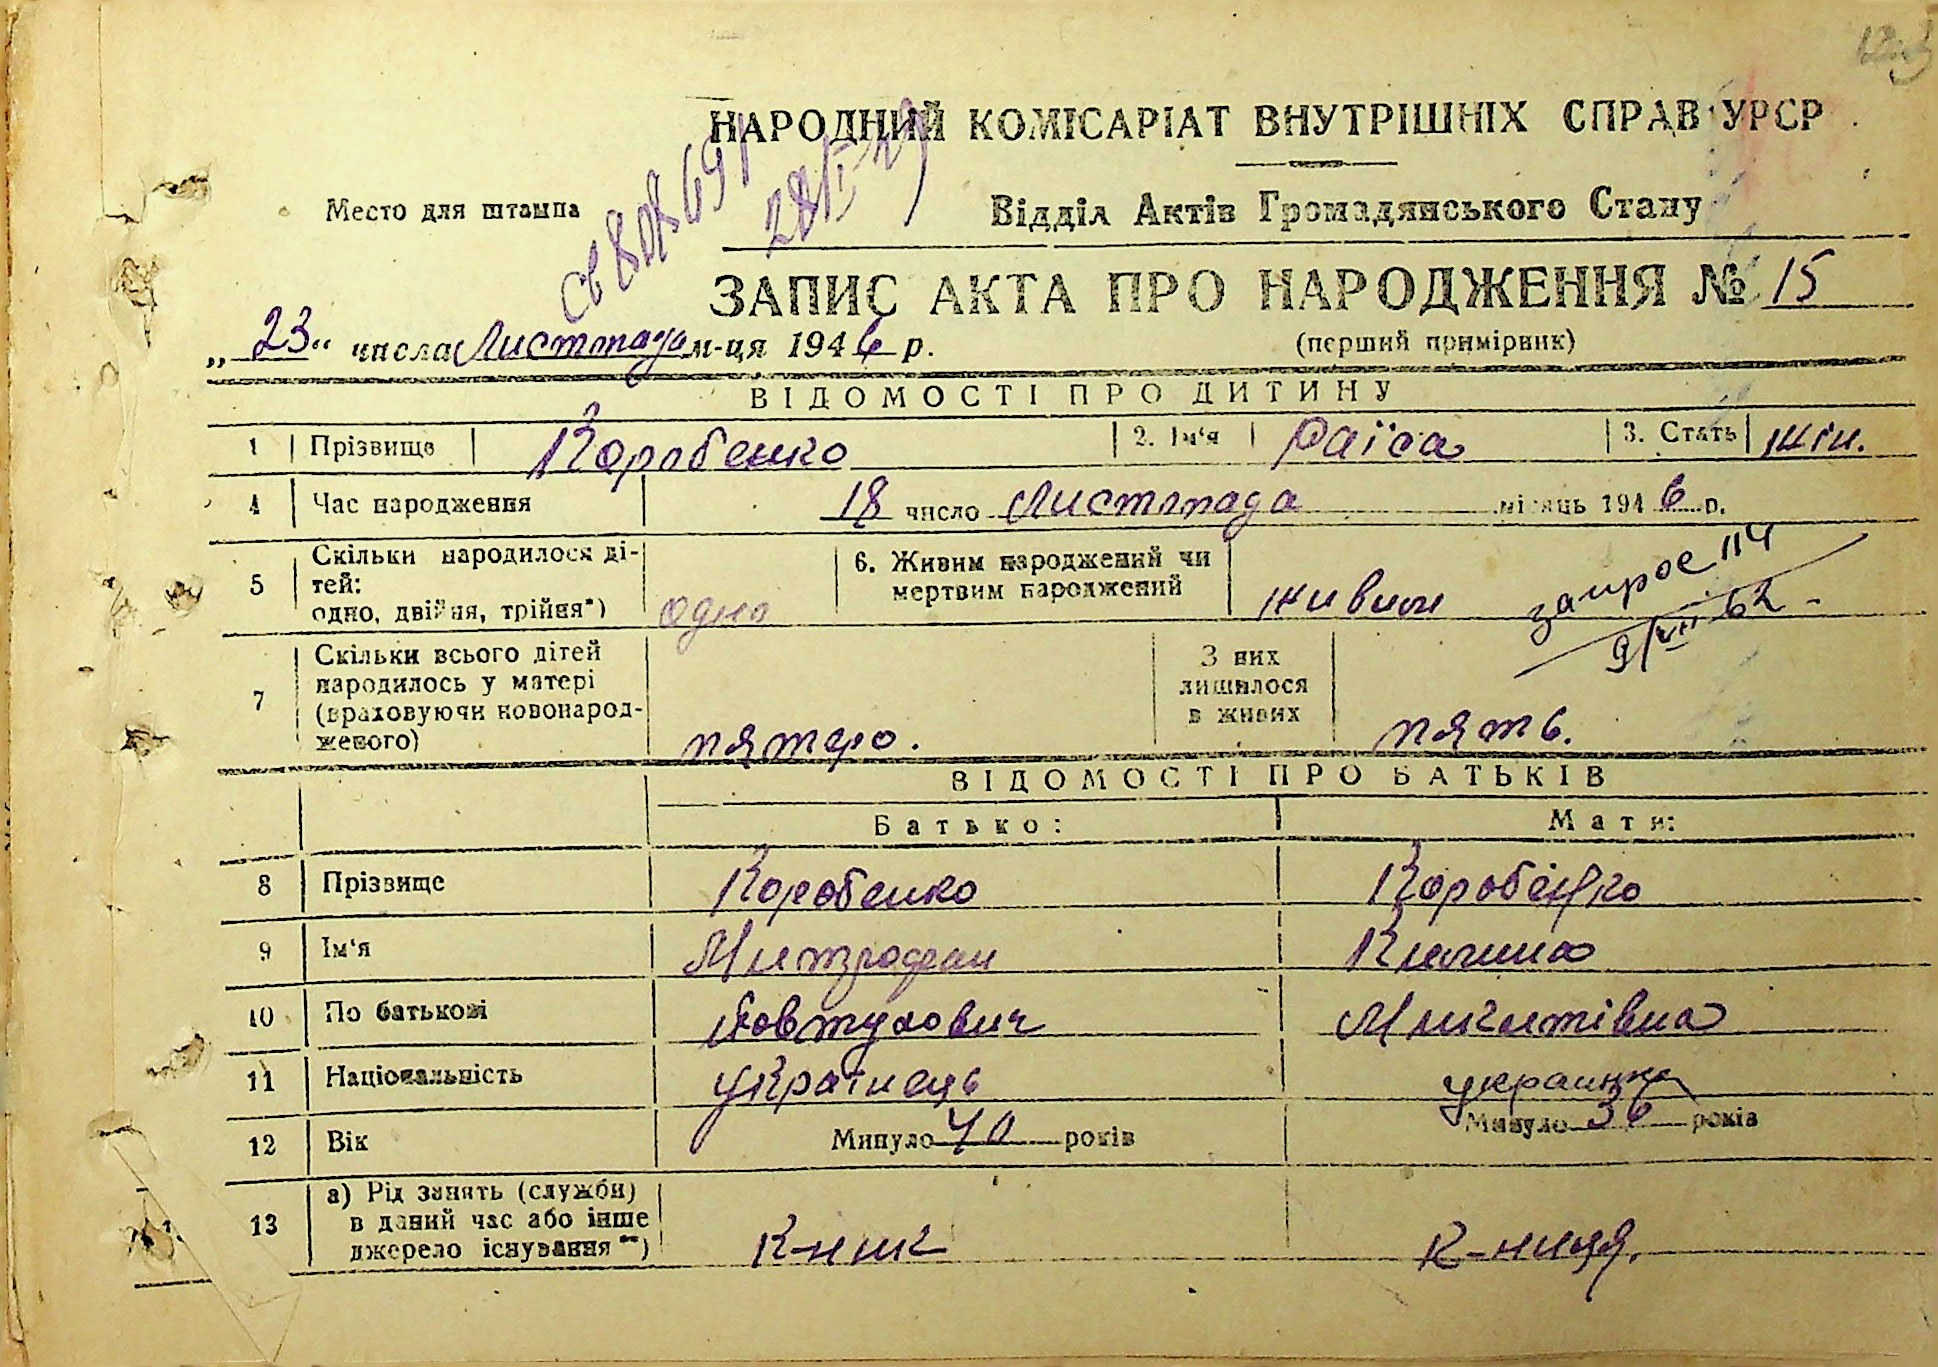 123
НАРОДНИЙ КОМІСАРІАТ ВНУТРІШНІХ СПРАВ УРСР
Место для штампа
Відділ Актів Громадянського Стану
28/I-49
ЗАПИС АКТА ПРО НАРОДЖЕННЯ № 15
„23“ числа Листопада м-ця 1946 р.
(перший примірник)
ВІДОМОСТІ ПРО ДИТИНУ
1 Прізвище Коробенко 2. Ім'я Раїса 3. Стать жін.
4 Час народження 18 число Листопада місяць 1946 р.
запрос 114
9/VII 62
5 Скільки народилося ді-
тей:
одно, двійня, трійня*) одна
6. Живим народжений чи
мертвим народжений живим
7 Скільки всього дітей
народилось у матері
(враховуючи новонарод-
женого) пятеро.
З них
лишилося
в живих пять.
ВІДОМОСТІ ПРО БАТЬКІВ
Батько: Мати:
8 Прізвище Коробенко Коробенко
9 Ім'я Митрофан Килина
10 По батькові Явтухович Микитівна
11 Національність українець украинка
12 Вік Минуло 40 років Минуло 36 років
13 а) Рід занять (служби)
в даний час або інше
джерело існування**) К-ник К-ниця.